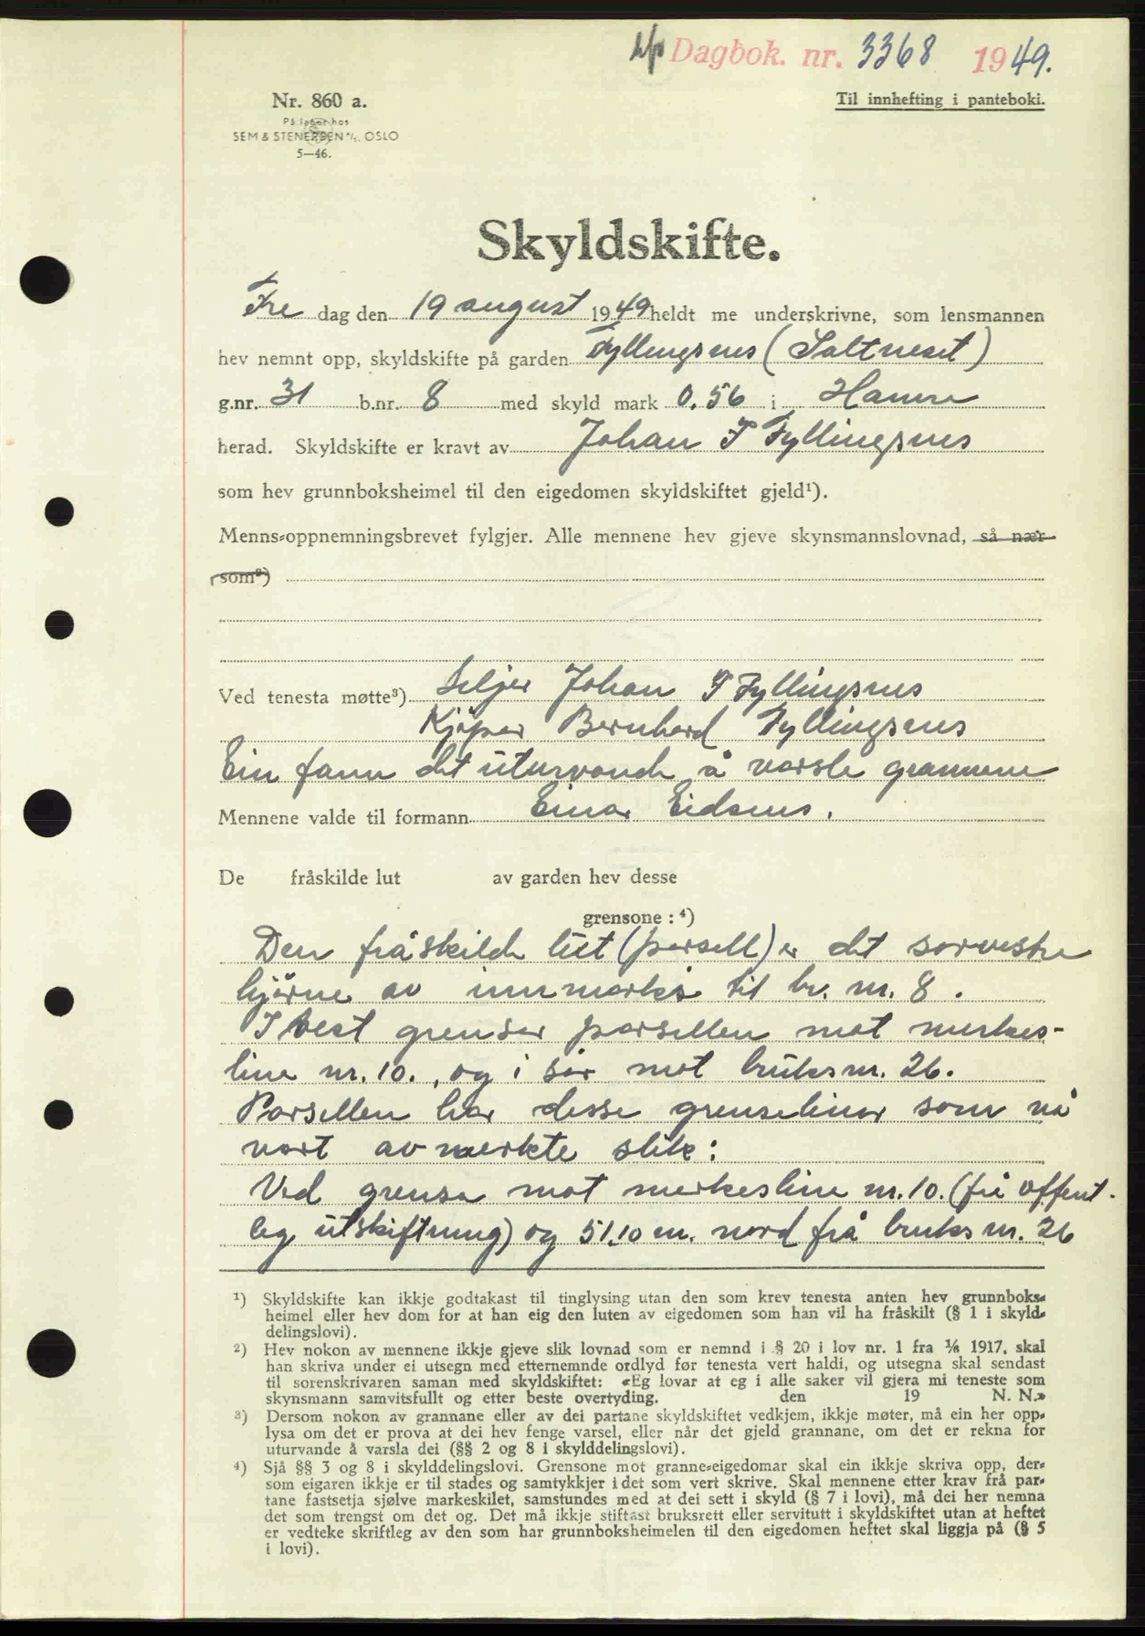 Dagbok. nr. 3368 1949.
Nr. 860 a.
Til innhefting i panteboki.
På lager hos
SEM & STENERSEN A/S. OSLO
5—46.
Skyldskifte.
Fre dag den 19 august 1949 heldt me underskrivne, som lensmannen
hev nemnt opp, skyldskifte på garden Fyllingsnes (Saltneset)
g.nr. 31 b.nr. 8 med skyld mark 0.56 i Hamre
herad. Skyldskifte er kravt av Johan T Fyllingsnes
som hev grunnboksheimel til den eigedomen skyldskiftet gjeld¹).
Menns-oppnemningsbrevet fylgjer. Alle mennene hev gjeve skynsmannslovnad, så nær
som²)
Ved tenesta møtte³) Seljer Johan T Fyllingsnes
Kjöper Bernhard Fyllingsnes
Ein fann det uturvande å varsle grannene
Mennene valde til formann Einar Eidsnes.
De fråskilde lut av garden hev desse
grensone : ⁴)
Den fråskilde lut (parsell) er det sørvestre
hjörne av innmarka til br. nr. 8.
I vest grensar parsellen mot merkes-
line nr. 10., og i sör mot bruksnr. 26.
Parsellen har desse grenselinor som nå
vart avmerkte slik:
Ved grensa mot merkesline nr. 10. (frå offent-
leg utskiftning) og 51,10 m. nord frå bruksnr. 26
¹) Skyldskifte kan ikkje godtakast til tinglysing utan den som krev tenesta anten hev grunnboks-
heimel eller hev dom for at han eig den luten av eigedomen som han vil ha fråskilt (§ 1 i skyld-
delingslovi).
²) Hev nokon av mennene ikkje gjeve slik lovnad som er nemnd i § 20 i lov nr. 1 fra 1/6 1917, skal
han skriva under ei utsegn med etternemnde ordlyd før tenesta vert haldi, og utsegna skal sendast
til sorenskrivaren saman med skyldskiftet: «Eg lovar at eg i alle saker vil gjera mi teneste som
skynsmann samvitsfullt og etter beste overtyding. den 19 N. N.»
³) Dersom nokon av grannane eller av dei partane skyldskiftet vedkjem, ikkje møter, må ein her opp-
lysa om det er prova at dei hev fenge varsel, eller når det gjeld grannane, om det er rekna for
uturvande å varsla dei (§§ 2 og 8 i skylddelingslovi).
⁴) Sjå §§ 3 og 8 i skylddelingslovi. Grensone mot granne-eigedomar skal ein ikkje skriva opp, der-
som eigaren ikkje er til stades og samtykkjer i det som vert skrive. Skal mennene etter krav frå par-
tane fastsetja sjølve markeskilet, samstundes med at dei sett i skyld (§ 7 i lovi), må dei her nemna
det som trengst om det og. Det må ikkje stiftast bruksrett eller servitutt i skyldskiftet utan at heftet
er vedteke skriftleg av den som har grunnboksheimelen til den eigedomen heftet skal liggja på (§ 5
i lovi).